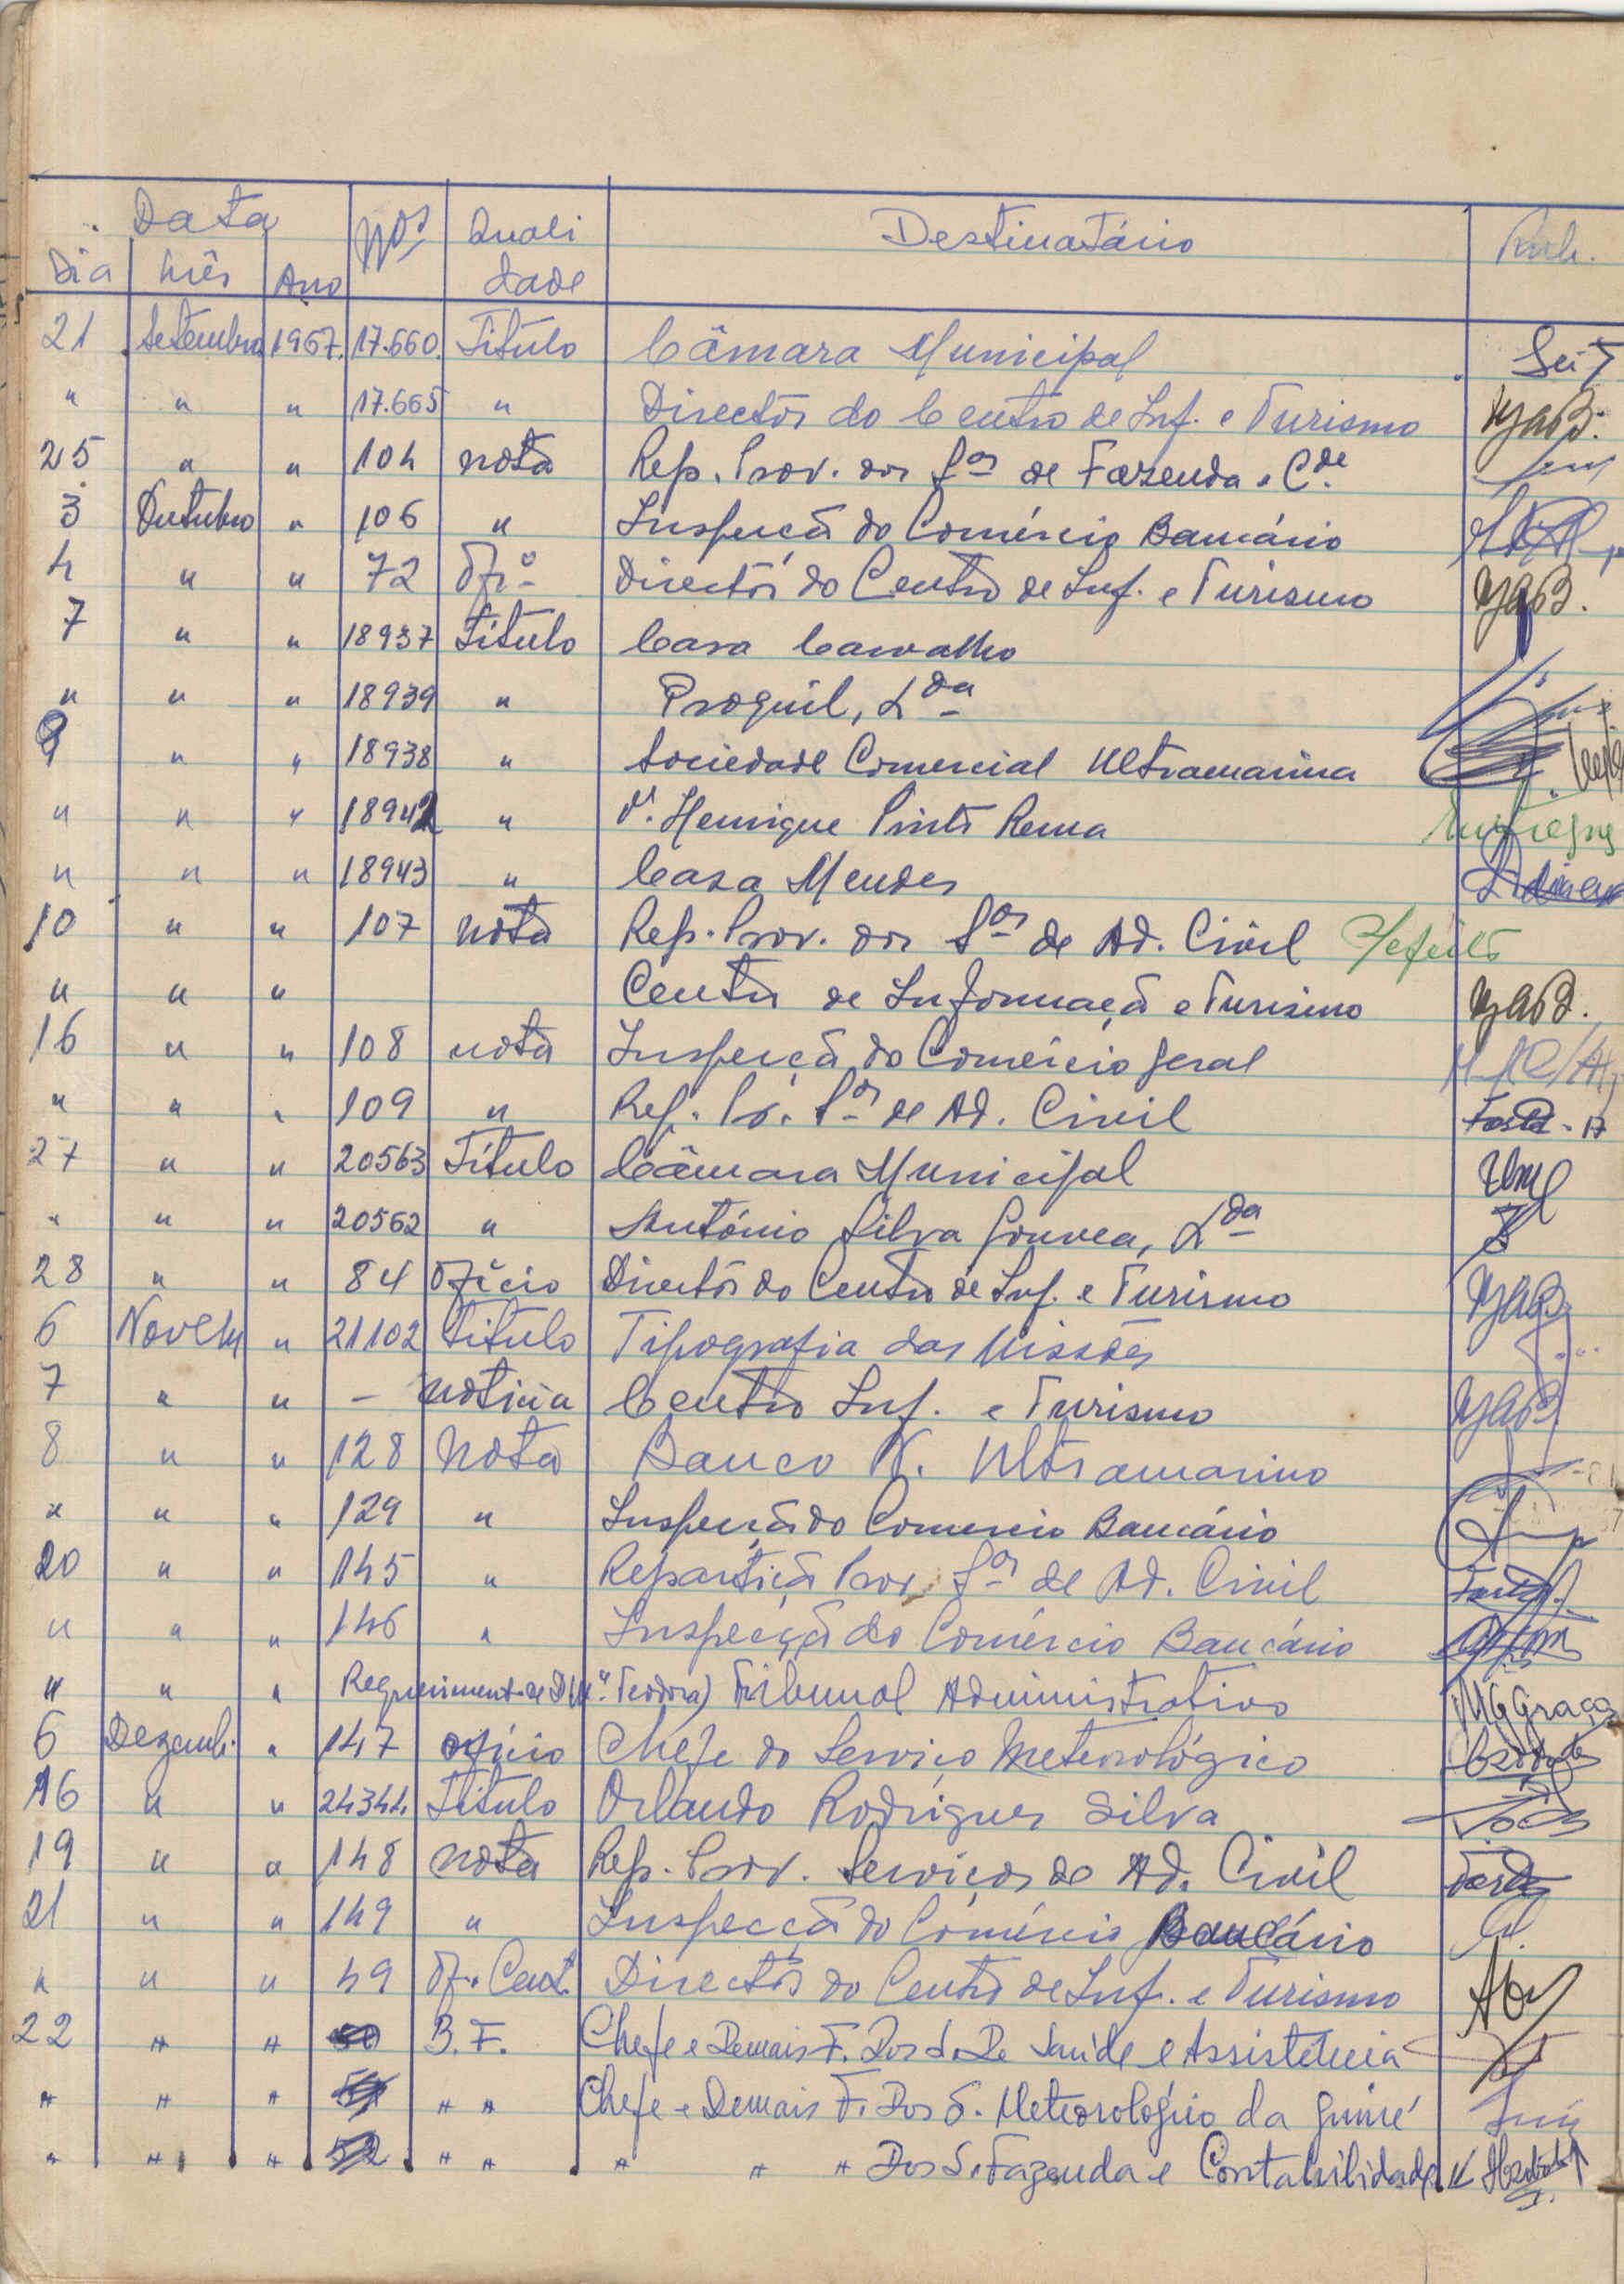 Data Nos Quali Destinatário Rub.
Dia Mês Ano dade
21 Setembro 1967. 17.660. Título Câmara Municipal
" " " 17.665 " Directôr do Centro de Inf. e Turismo
25 " " 104 nota Rep. Prov. dos Sos de Fazenda e Cde
3 Outubro " 106 " Inspecçã do Comércio Bancário
4 " " 72 Ofº Directôr do Centro de Inf. e Turismo
7 " " 18937 Título Casa Carvalho
" " " 18939 " Proquil, Lda
9 " " 18938 " Sociedade Comercial Ultramarina
" " " 18942 " Henrique Pinto Rema
" " " 18943 " Casa Mendes
10 " " 107 nota Rep. Prov. dos Sos de Ad. Civil
" " " Centro de Informaçã e Turismo
16 " " 108 nota Inspecçã do Comércio Geral
" " " 109 " Rep. Pr. Sos de Ad. Civil
27 " " 20563 Título Câmara Municipal
" " " 20562 " António Silva Gouvea, Lda
28 " " 84 Ofício Directôr do Centro de Inf. e Turismo
6 Novem " 21102 Título Tipografia das Missões
7 " " - notícia Centro Inf. e Turismo
8 " " 128 Nota Banco N. Ultramarino
" " " 129 " Inspecçã do Comercio Bancário
20 " " 145 " Repartiçã Prov. Sos de Ad. Civil
" " " 146 " Inspecçã do Comércio Bancário
" " " Requerimento de D. Mª Teodora) Tribunal Administrativo MGGraça
6 Dezemb. " 147 ofício Chefe do Serviço Meteorológico
16 " " 24344 Título Orlando Rodrigues Silva
19 " " 148 nota Rep. Prov. Serviços de Ad. Civil
21 " " 149 " Inspecçã do Comércio Bancário
" " " 49 Of. Cent. Directôr do Centro de Inf. e Turismo
22 " " 50 B. F. Chefe e Demais F. Dos S. De Saúde e Assistência
" " " 51 " " Chefe e Demais F. Dos S. Meteorológico da Guiné
" " " 52 " " " " " Dos S. Fazenda e Contabilidade